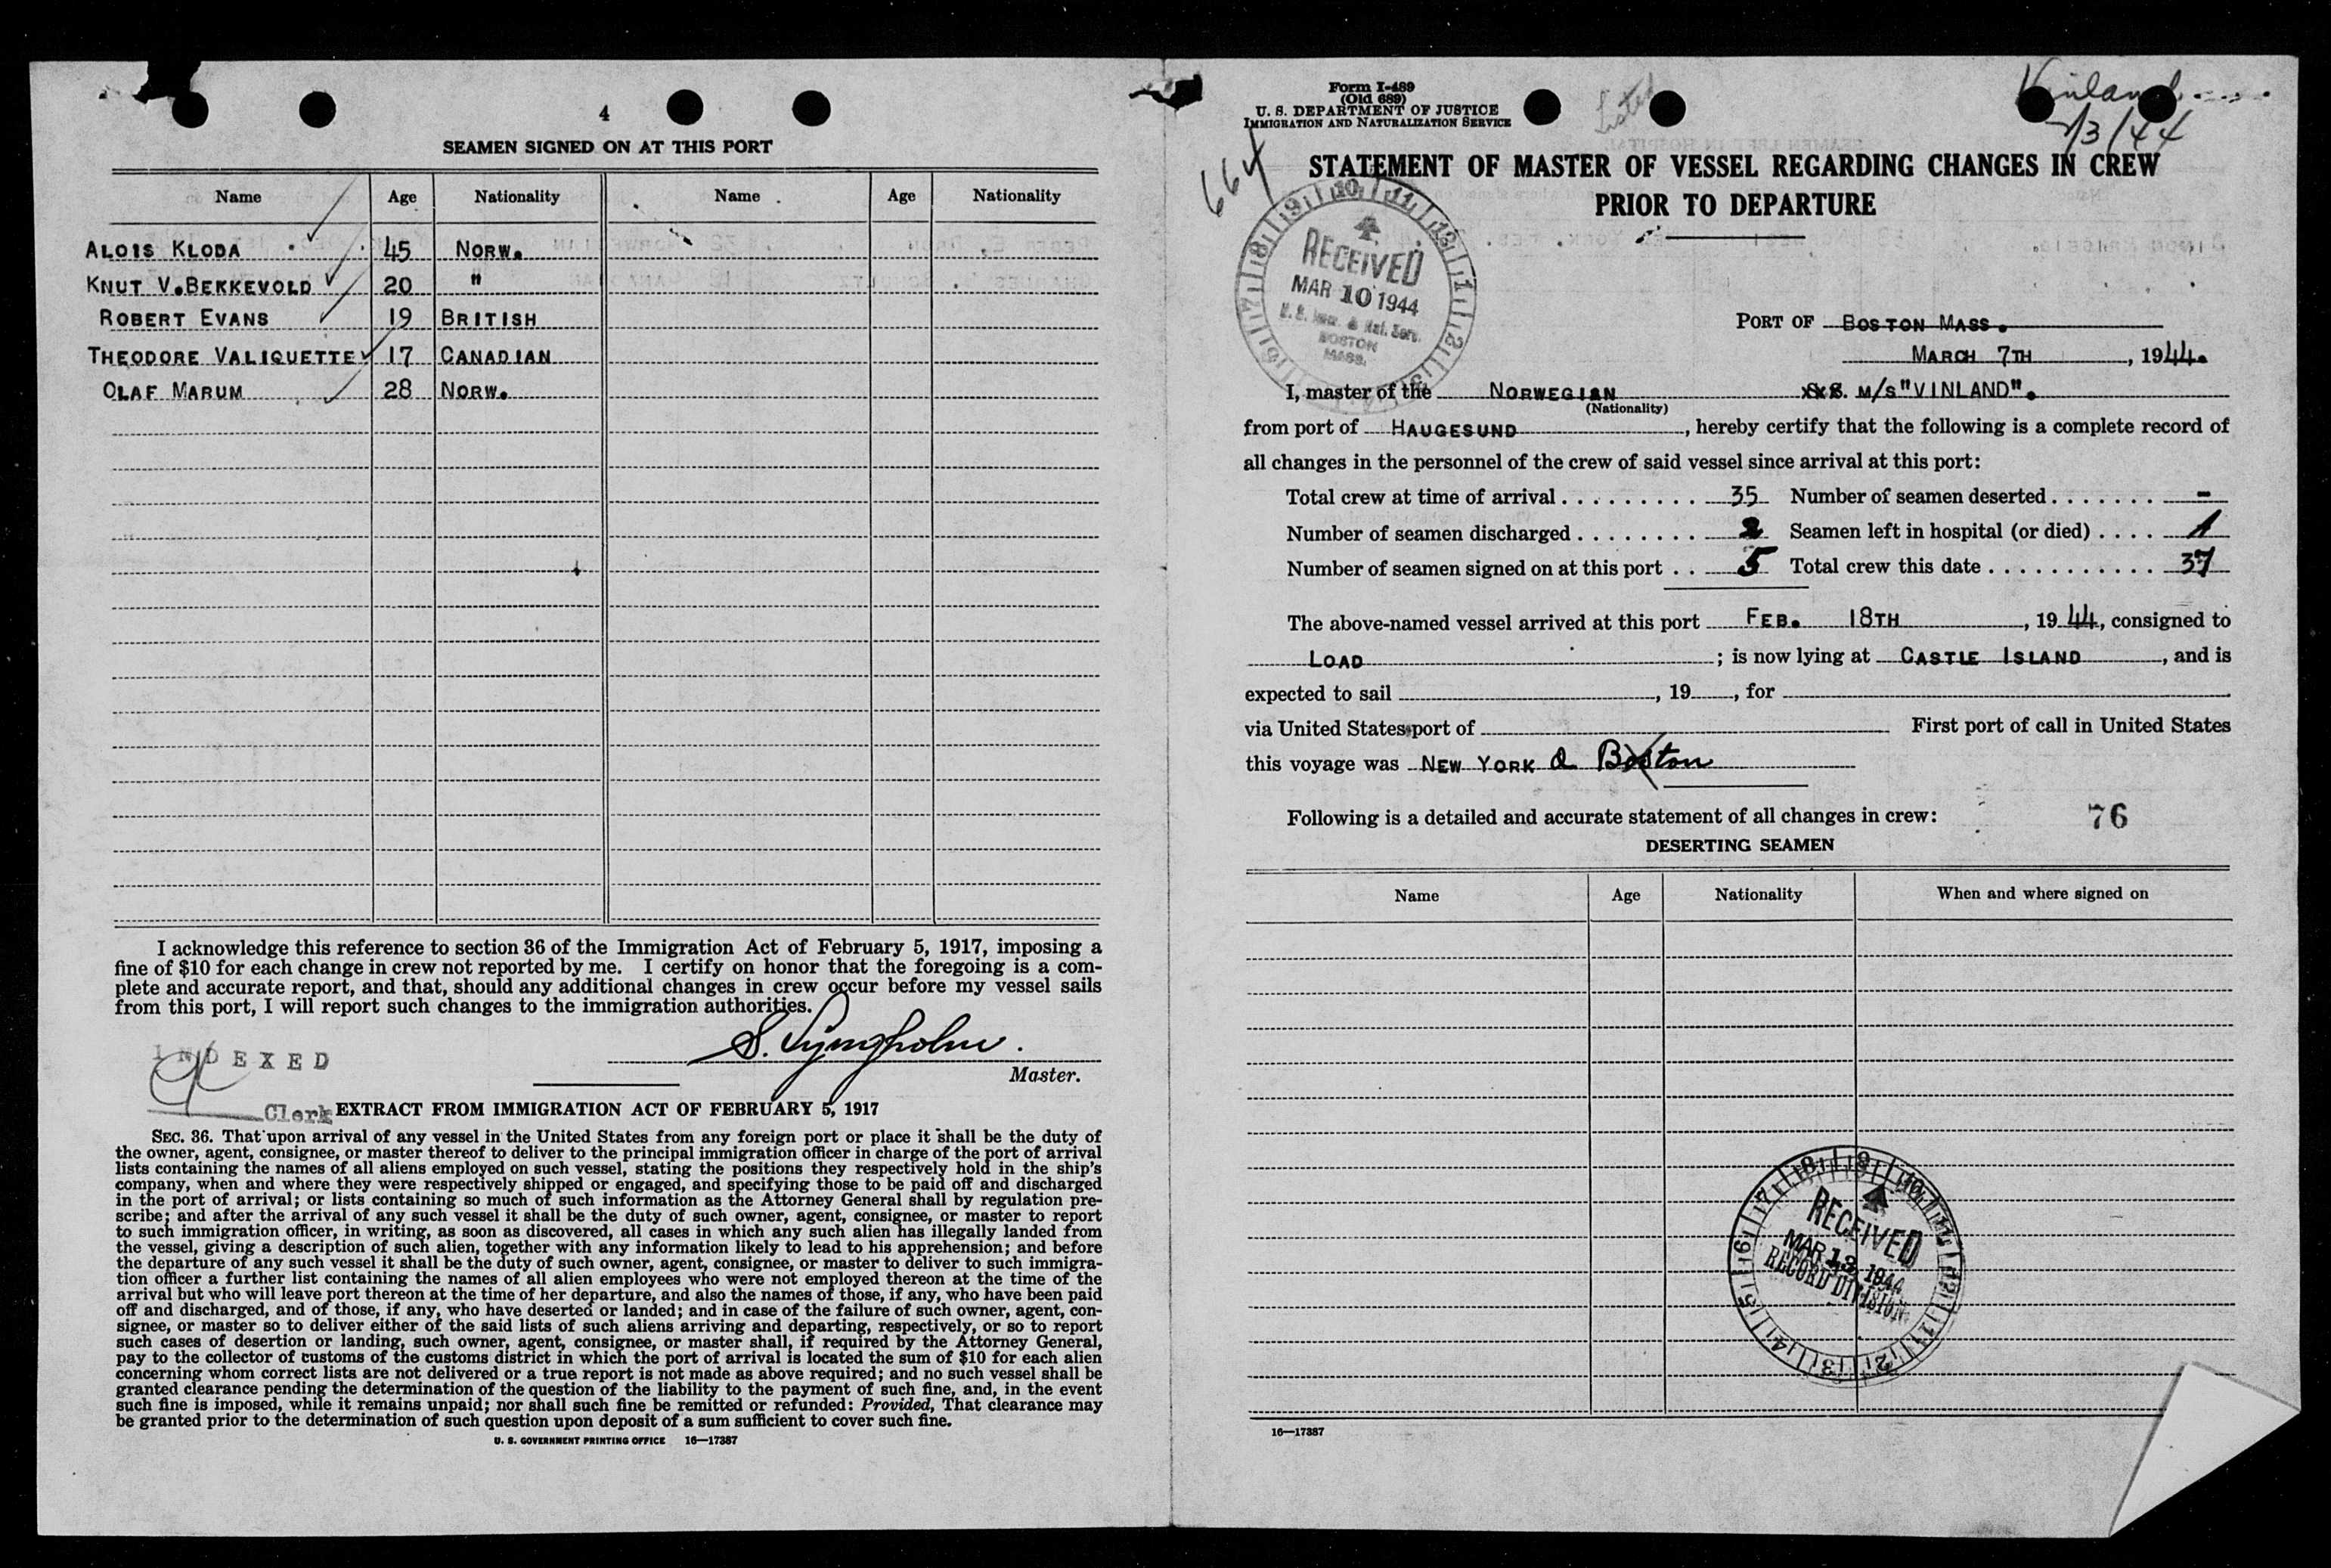 4
SEAMEN SIGNED ON AT THIS PORT
Name Age Nationality Name Age Nationality
ALOIS KLODA 45 NORW.
KNUT V. BEKKEVOLD 20 "
ROBERT EVANS 19 BRITISH
THEODORE VALIQUETTE 17 CANADIAN
OLAF MARUM 28 NORW.
I acknowledge this reference to section 36 of the Immigration Act of February 5, 1917, imposing a
fine of $10 for each change in crew not reported by me. I certify on honor that the foregoing is a com-
plete and accurate report, and that, should any additional changes in crew occur before my vessel sails
from this port, I will report such changes to the immigration authorities.
Master.
INDEXED
Clerk
EXTRACT FROM IMMIGRATION ACT OF FEBRUARY 5, 1917
SEC. 36. That upon arrival of any vessel in the United States from any foreign port or place it shall be the duty of
the owner, agent, consignee, or master thereof to deliver to the principal immigration officer in charge of the port of arrival
lists containing the names of all aliens employed on such vessel, stating the positions they respectively hold in the ship's
company, when and where they were respectively shipped or engaged, and specifying those to be paid off and discharged
in the port of arrival; or lists containing so much of such information as the Attorney General shall by regulation pre-
scribe; and after the arrival of any such vessel it shall be the duty of such owner, agent, consignee, or master to report
to such immigration officer, in writing, as soon as discovered, all cases in which any such alien has illegally landed from
the vessel, giving a description of such alien, together with any information likely to lead to his apprehension; and before
the departure of any such vessel it shall be the duty of such owner, agent, consignee, or master to deliver to such immigra-
tion officer a further list containing the names of all alien employees who were not employed thereon at the time of the
arrival but who will leave port thereon at the time of her departure, and also the names of those, if any, who have been paid
off and discharged, and of those, if any, who have deserted or landed; and in case of the failure of such owner, agent, con-
signee, or master so to deliver either of the said lists of such aliens arriving and departing, respectively, or so to report
such cases of desertion or landing, such owner, agent, consignee, or master shall, if required by the Attorney General,
pay to the collector of customs of the customs district in which the port of arrival is located the sum of $10 for each alien
concerning whom correct lists are not delivered or a true report is not made as above required; and no such vessel shall be
granted clearance pending the determination of the question of the liability to the payment of such fine, and, in the event
such fine is imposed, while it remains unpaid; nor shall such fine be remitted or refunded: Provided, That clearance may
be granted prior to the determination of such question upon deposit of a sum sufficient to cover such fine.
U. S. GOVERNMENT PRINTING OFFICE 16—17387
Form I-489
(Old 689)
U. S. DEPARTMENT OF JUSTICE
IMMIGRATION AND NATURALIZATION SERVICE
Listed
Vinland
3/44
664
STATEMENT OF MASTER OF VESSEL REGARDING CHANGES IN CREW
PRIOR TO DEPARTURE
RECEIVED
MAR 10 1944
U. S. Imm. & Nat. Serv.
BOSTON
MASS.
PORT OF BOSTON MASS.
MARCH 7TH, 1944.
I, master of the NORWEGIAN S.S. M/S "VINLAND".
(Nationality)
from port of HAUGESUND, hereby certify that the following is a complete record of
all changes in the personnel of the crew of said vessel since arrival at this port:
Total crew at time of arrival . . . . . . . . . 35 Number of seamen deserted . . . . . . . -
Number of seamen discharged . . . . . . . . 2 Seamen left in hospital (or died) . . . . 1
Number of seamen signed on at this port . . 5 Total crew this date . . . . . . . . . . . 37
The above-named vessel arrived at this port FEB. 18TH, 1944, consigned to
LOAD; is now lying at CASTLE ISLAND, and is
expected to sail , 19 , for
via United States port of First port of call in United States
this voyage was NEW YORK & Boston
Following is a detailed and accurate statement of all changes in crew: 76
DESERTING SEAMEN
Name Age Nationality When and where signed on
RECEIVED
MAR 13 1944
RECORD DIVISION
16—17387